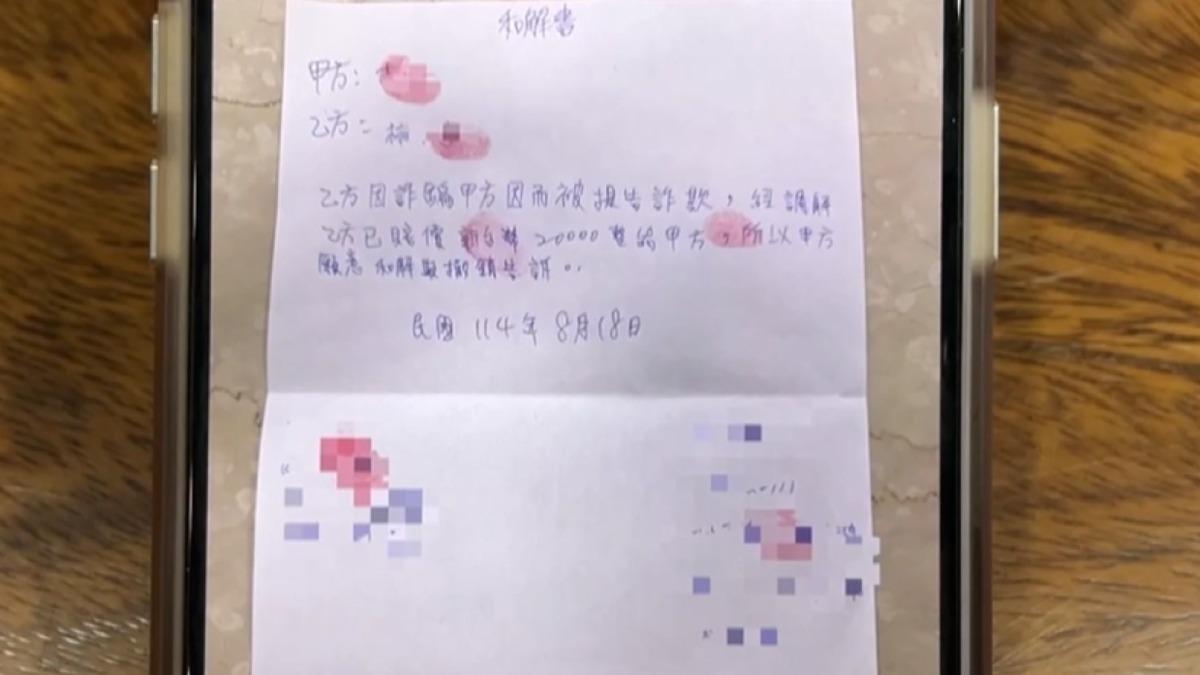 和解書
甲方:
乙方:
乙方因詐騙甲方因而被提告詐欺,經調解
乙方已賠償新台幣20000整給甲方,所以甲方
願意和解並撤銷告訴。
民國 114年 8月18日